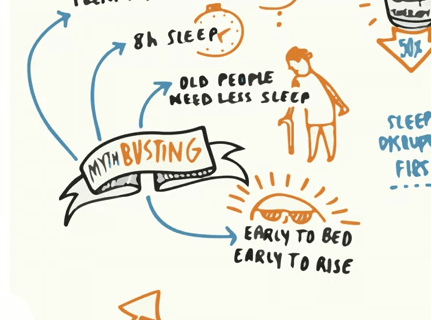 8h SLEEP
OLD PEOPLE
NEED LESS SLEEP
MYTH BUSTING
EARLY TO BED
EARLY TO RISE
THERAPY
50%
SLEEP
DISRUPT
FIBS